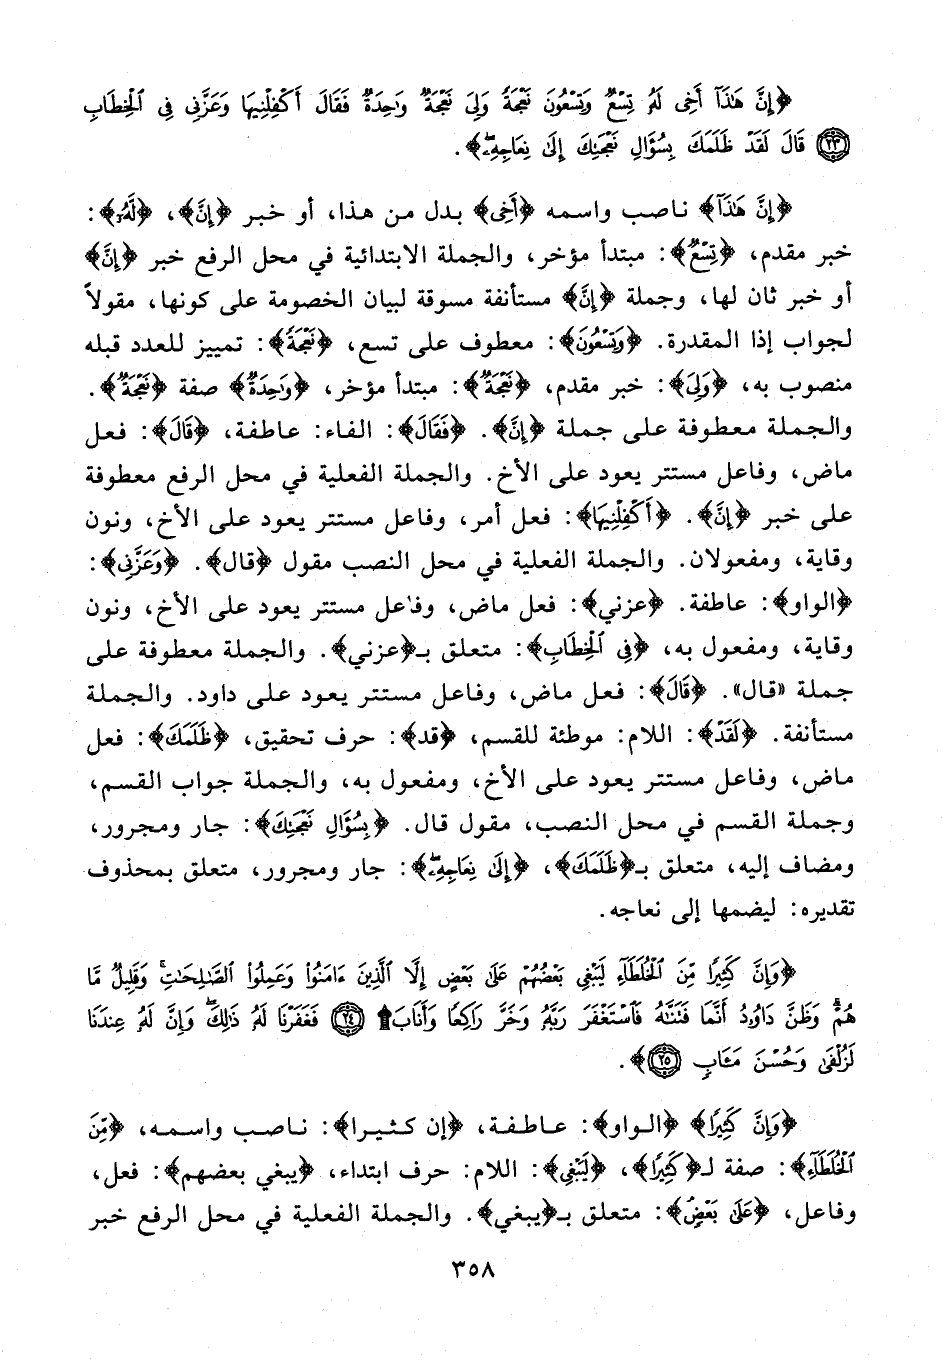 ﴿إِنَّ هَٰذَآ أَخِى لَهُۥ تِسْعٌ وَتِسْعُونَ نَعْجَةً وَلِىَ نَعْجَةٌ وَٰحِدَةٌ فَقَالَ أَكْفِلْنِيهَا وَعَزَّنِى فِى ٱلْخِطَابِ
﴿٢٣﴾ قَالَ لَقَدْ ظَلَمَكَ بِسُؤَالِ نَعْجَتِكَ إِلَىٰ نِعَاجِهِۦ ۖ﴾.
﴿إِنَّ هَٰذَآ﴾ ناصب واسمه ﴿أَخِى﴾ بدل من هذا، أو خبر ﴿إِنَّ﴾، ﴿لَهُۥ﴾:
خبر مقدم، ﴿تِسْعٌ﴾: مبتدأ مؤخر، والجملة الابتدائية في محل الرفع خبر ﴿إِنَّ﴾
أو خبر ثان لها، وجملة ﴿إِنَّ﴾ مستأنفة مسوقة لبيان الخصومة على كونها، مقولاً
لجواب إذا المقدرة. ﴿وَتِسْعُونَ﴾: معطوف على تسع، ﴿نَعْجَةً﴾: تمييز للعدد قبله
منصوب به، ﴿وَلِىَ﴾: خبر مقدم، ﴿نَعْجَةٌ﴾: مبتدأ مؤخر، ﴿وَٰحِدَةٌ﴾ صفة ﴿نَعْجَةٌ﴾.
والجملة معطوفة على جملة ﴿إِنَّ﴾. ﴿فَقَالَ﴾: الفاء: عاطفة، ﴿قَالَ﴾: فعل
ماض، وفاعل مستتر يعود على الأخ. والجملة الفعلية في محل الرفع معطوفة
على خبر ﴿إِنَّ﴾. ﴿أَكْفِلْنِيهَا﴾: فعل أمر، وفاعل مستتر يعود على الأخ، ونون
وقاية، ومفعولان. والجملة الفعلية في محل النصب مقول ﴿قال﴾. ﴿وَعَزَّنِى﴾:
﴿الواو﴾: عاطفة. ﴿عزني﴾: فعل ماض، وفاعل مستتر يعود على الأخ، ونون
وقاية، ومفعول به، ﴿فِى ٱلْخِطَابِ﴾: متعلق بـ﴿عزني﴾. والجملة معطوفة على
جملة «قال». ﴿قَالَ﴾: فعل ماض، وفاعل مستتر يعود على داود. والجملة
مستأنفة. ﴿لَقَدْ﴾: اللام: موطئة للقسم، ﴿قد﴾: حرف تحقيق، ﴿ظَلَمَكَ﴾: فعل
ماض، وفاعل مستتر يعود على الأخ، ومفعول به، والجملة جواب القسم،
وجملة القسم في محل النصب، مقول قال. ﴿بِسُؤَالِ نَعْجَتِكَ﴾: جار ومجرور،
ومضاف إليه، متعلق بـ﴿ظَلَمَكَ﴾، ﴿إِلَىٰ نِعَاجِهِۦ ۖ﴾: جار ومجرور، متعلق بمحذوف
تقديره: ليضمها إلى نعاجه.
﴿وَإِنَّ كَثِيرًا مِّنَ ٱلْخُلَطَآءِ لَيَبْغِى بَعْضُهُمْ عَلَىٰ بَعْضٍ إِلَّا ٱلَّذِينَ ءَامَنُوا۟ وَعَمِلُوا۟ ٱلصَّٰلِحَٰتِ وَقَلِيلٌ مَّا
هُمْ ۗ وَظَنَّ دَاوُۥدُ أَنَّمَا فَتَنَّٰهُ فَٱسْتَغْفَرَ رَبَّهُۥ وَخَرَّ رَاكِعًا وَأَنَابَ ۩ ﴿٢٤﴾ فَغَفَرْنَا لَهُۥ ذَٰلِكَ ۖ وَإِنَّ لَهُۥ عِندَنَا
لَزُلْفَىٰ وَحُسْنَ مَـَٔابٍ ﴿٢٥﴾﴾.
﴿وَإِنَّ كَثِيرًا﴾ ﴿الواو﴾: عاطفة، ﴿إن كثيرا﴾: ناصب واسمه، ﴿مِّنَ
ٱلْخُلَطَآءِ﴾: صفة لـ﴿كَثِيرًا﴾، ﴿لَيَبْغِى﴾: اللام: حرف ابتداء، ﴿يبغي بعضهم﴾: فعل،
وفاعل، ﴿عَلَىٰ بَعْضٍ﴾: متعلق بـ﴿يبغي﴾. والجملة الفعلية في محل الرفع خبر
٣٥٨